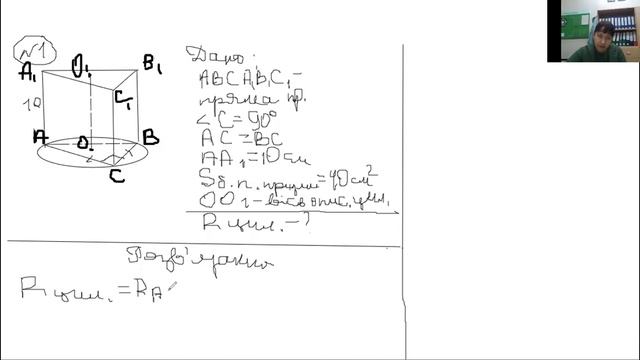 №1
A₁ O₁ B₁
C₁
10
A O B
C
Дано:
ABCA₁B₁C₁ –
пряма пр.
∠C = 90°
AC = BC
AA₁ = 10 см
Sб.п. призми = 40 см²
OO₁ – вісь опис. цил.
R цил. – ?
Розв'язання
R цил. = R A